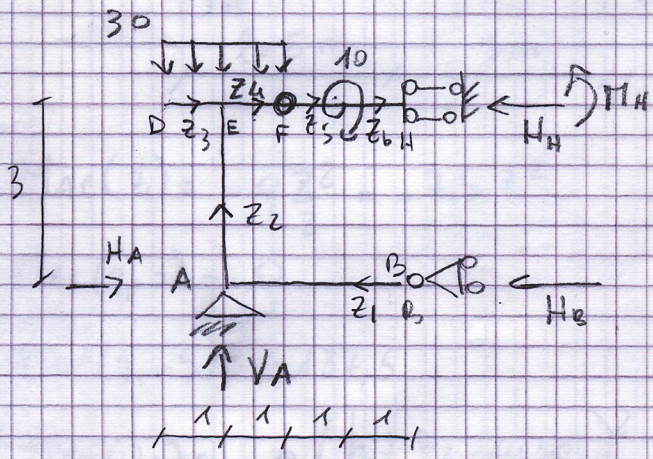 30
10
Z4
D Z3 E F Z5 Z6 H
HH
MH
3
Z2
HA
A
B
Z1
B
HB
VA
1 1 1 1